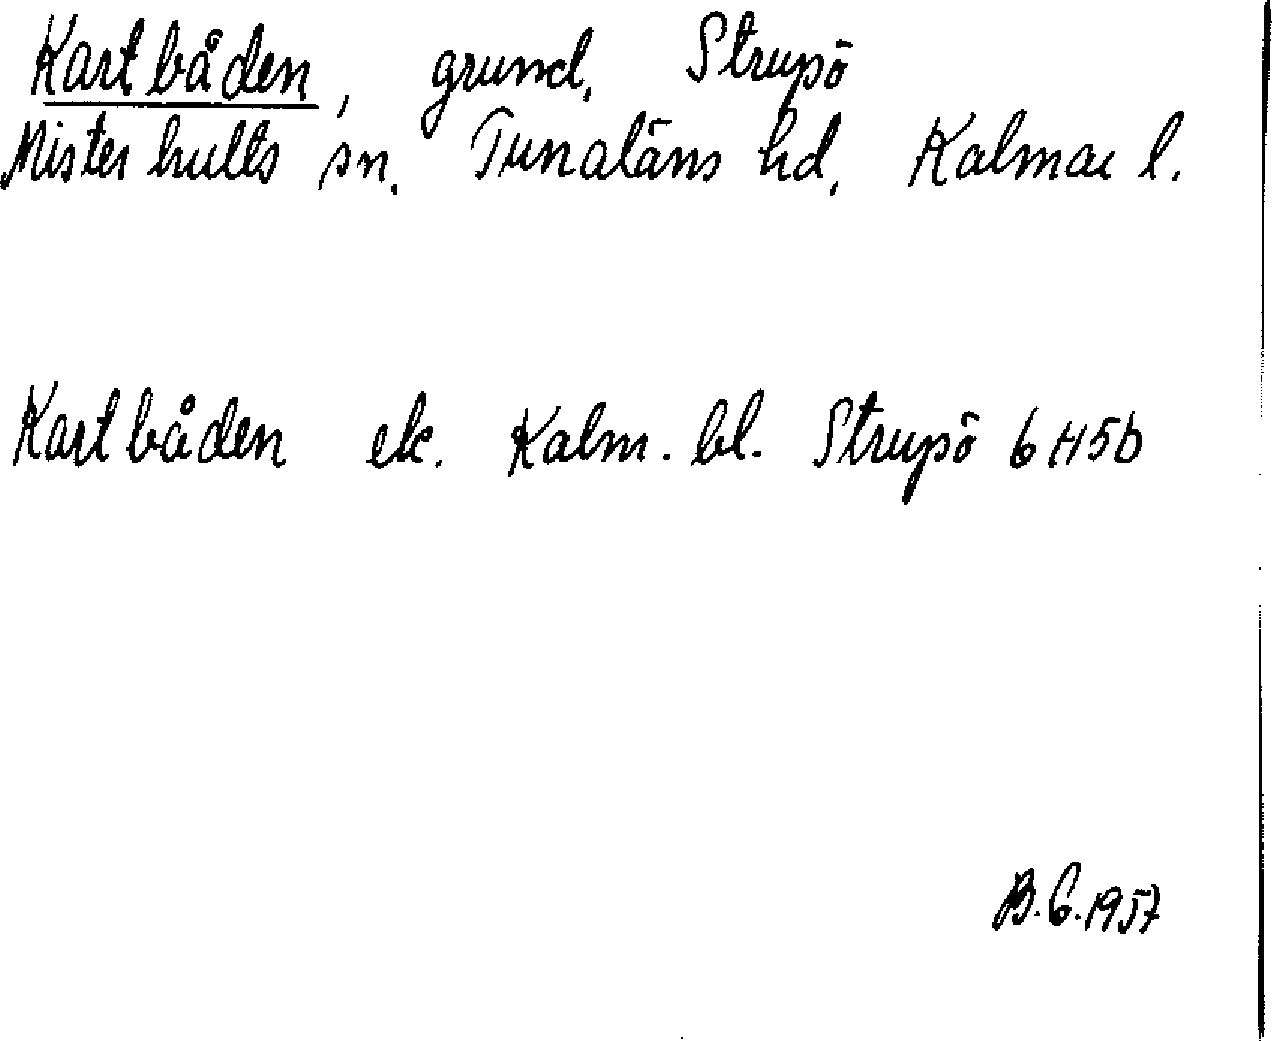 Kartbåden, grund, Strupö
Misterhults sn. Tunaläns hd, Kalmar l.
Kartbåden ek. Kalm. bl. Strupö 6H5b
B.G.1957